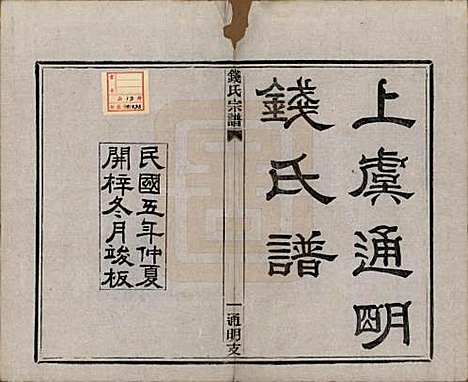 上虞通明
錢氏譜
錢氏宗譜
一 通明支
民國五年仲夏
開梓冬月竣板